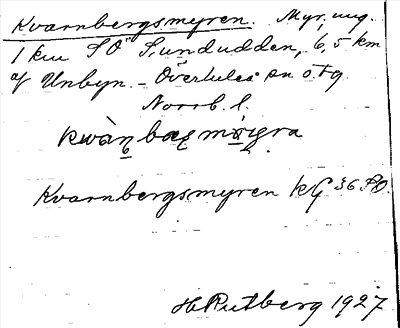 Kvarnbergsmyren. Myr, ung.
1 km SO Sundudden, 6,5 km
af Unbyn. – Överluleå sn o. tg.
Norrb. l.
Kvarnbergsmyren kG 36 SO.
H Rutberg 1927